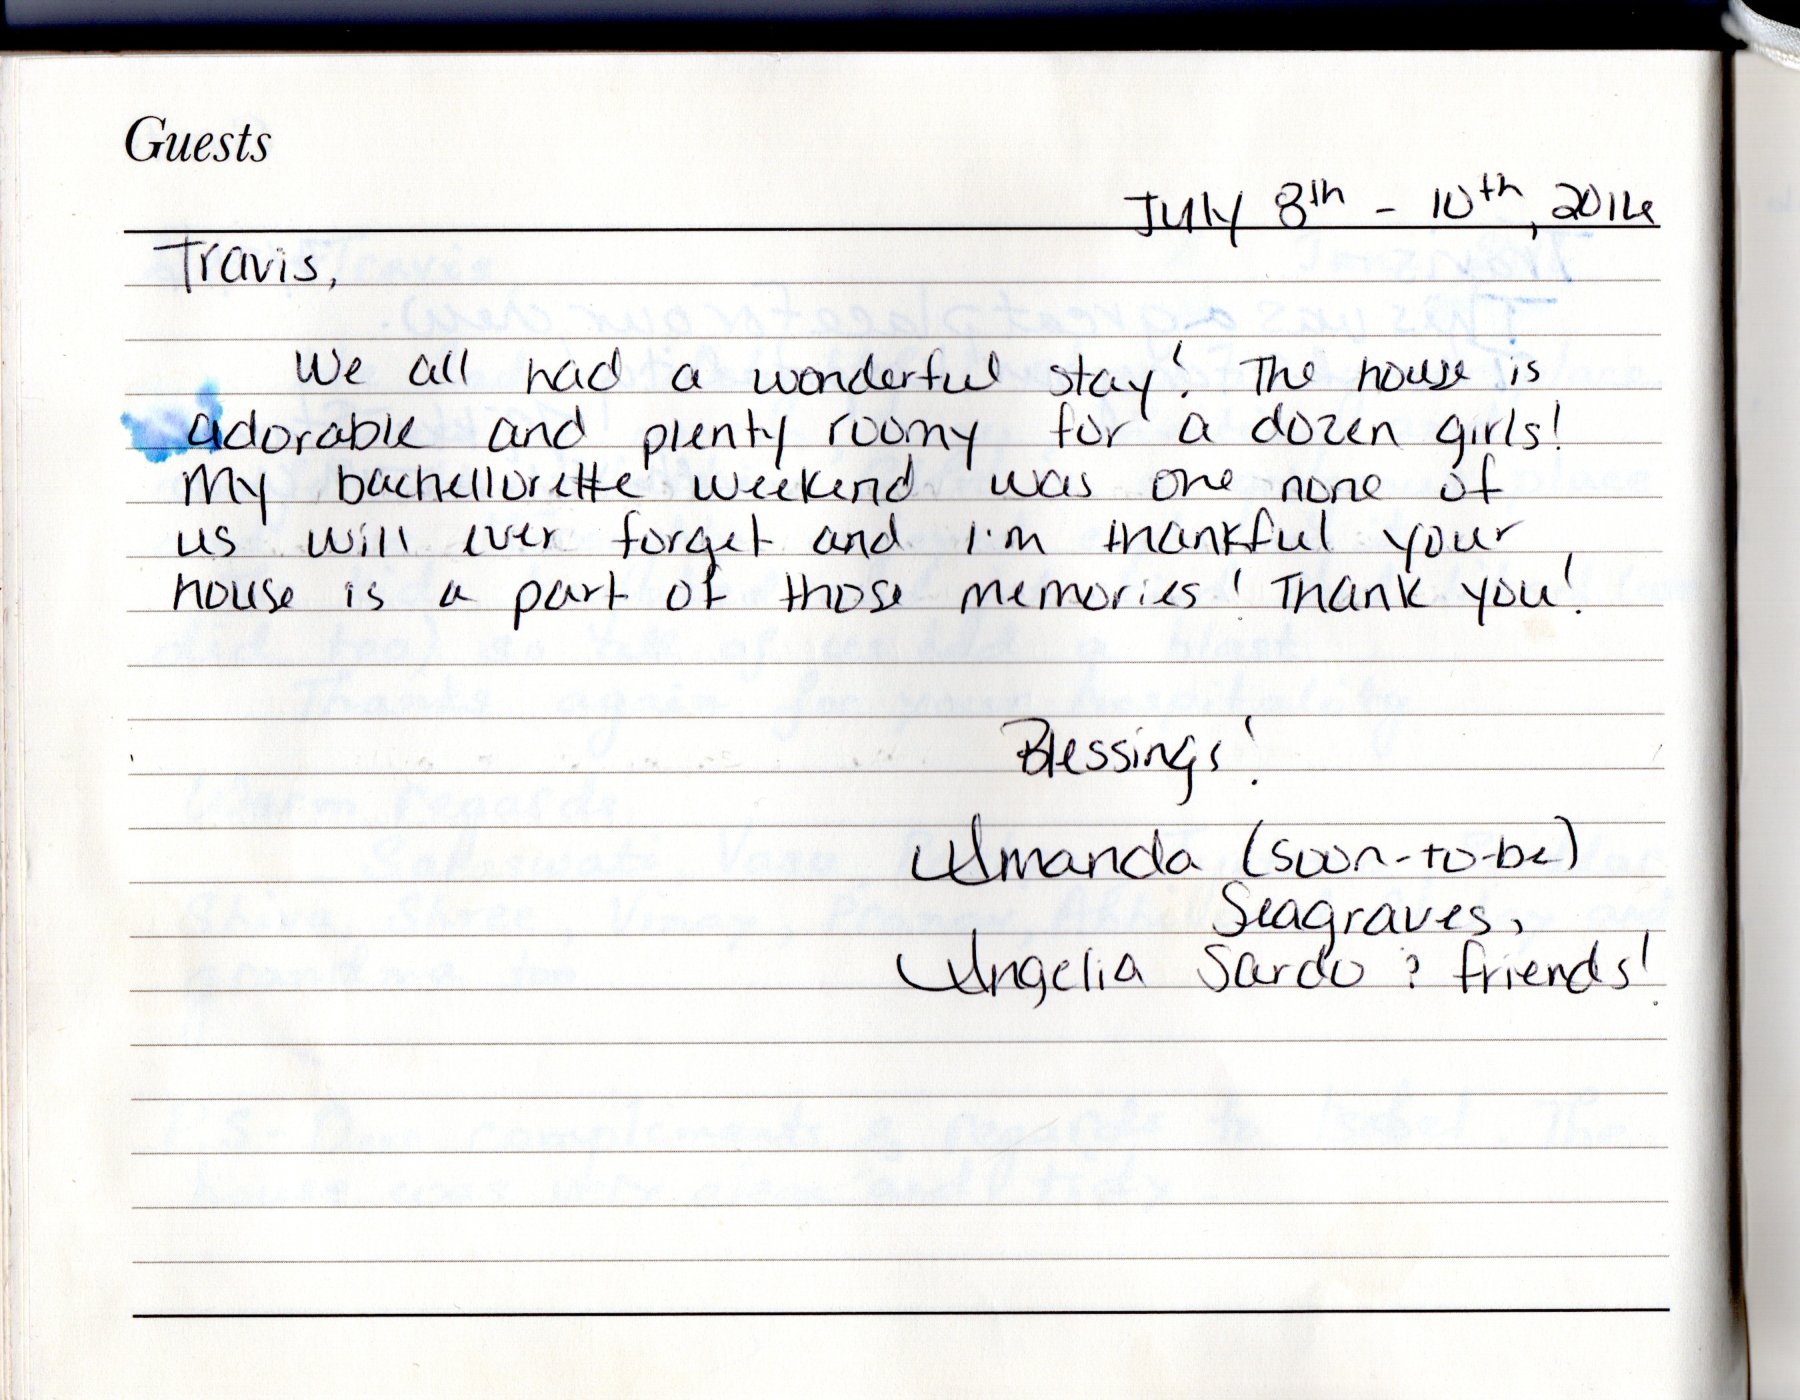 Guests
July 8th - 10th, 2016
Travis,
We all had a wonderful stay! The house is
adorable and plenty roomy for a dozen girls!
My bachellorette weekend was one none of
us will ever forget and I'm thankful your
house is a part of those memories! Thank you!
Blessings!
Amanda (soon-to-be)
Seagraves,
Angelia Sardo & friends!